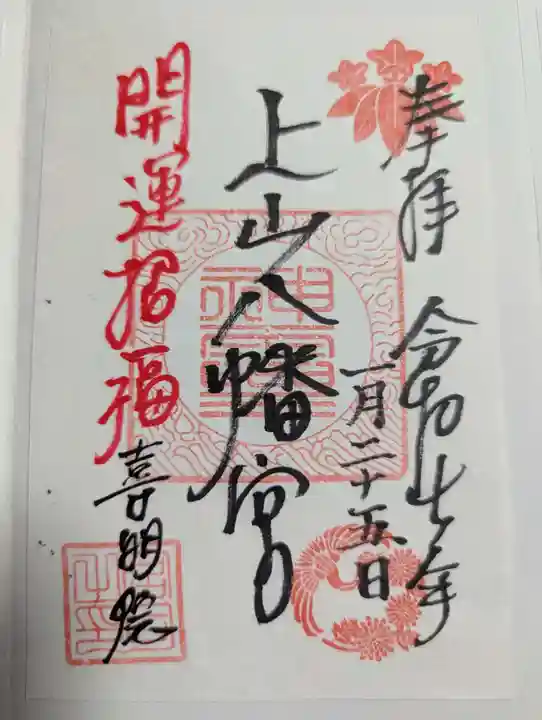 奉拝
令和七年
一月二十五日
上山八幡宮
開運招福
喜明院